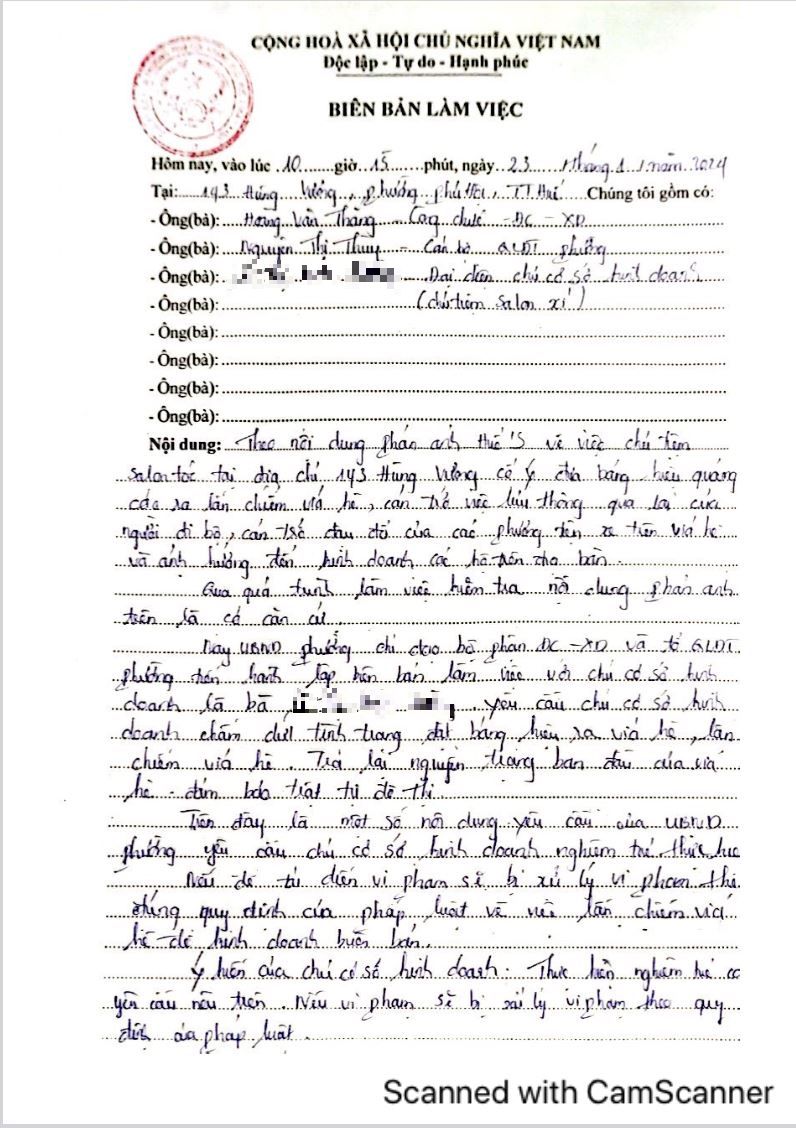 CỘNG HOÀ XÃ HỘI CHỦ NGHĨA VIỆT NAM
Độc lập - Tự do - Hạnh phúc
BIÊN BẢN LÀM VIỆC
Hôm nay, vào lúc 10 giờ 15 phút, ngày 23 tháng 1 năm 2024
Tại: 143 Hùng Vương, phường Phú Hội, TT Huế Chúng tôi gồm có:
- Ông(bà): Hoàng Văn Thắng - Công chức ĐC - XD
- Ông(bà): Nguyễn Thị Thuỷ - Cán bộ QLĐT phường
- Ông(bà): Đại diện chủ cơ sở kinh doanh
- Ông(bà): (chủ tiệm Salon xí)
- Ông(bà):
- Ông(bà):
- Ông(bà):
- Ông(bà):
Nội dung: Theo nội dung phản ánh Huế S về việc chủ tiệm
salon tóc tại địa chỉ 143 Hùng Vương cố ý đưa bảng hiệu quảng
cáo ra lấn chiếm vỉa hè, cản trở việc lưu thông qua lại của
người đi bộ, cản trở đậu đỗ của các phương tiện xe trên vỉa hè
và ảnh hưởng đến kinh doanh các hộ trên địa bàn.
Qua quá trình làm việc kiểm tra nội dung phản ánh
trên là có căn cứ.
Nay UBND phường chỉ đạo bộ phận ĐC - XD và tổ QLĐT
phường tiến hành lập biên bản làm việc với chủ cơ sở kinh
doanh là bà , yêu cầu chủ cơ sở kinh
doanh chấm dứt tình trạng đặt bảng hiệu ra vỉa hè, lấn
chiếm vỉa hè. Trả lại nguyên trạng ban đầu của vỉa
hè. đảm bảo trật tự đô thị
Trên đây là một số nội dung yêu cầu của UBND
phường yêu cầu chủ cơ sở kinh doanh nghiêm túc thực hiện
Nếu để tái diễn vi phạm sẽ bị xử lý vi phạm theo
đúng quy định của pháp luật về việc lấn chiếm vỉa
hè để kinh doanh buôn bán.
Ý kiến của chủ cơ sở kinh doanh: Thực hiện nghiêm túc các
yêu cầu nêu trên. Nếu vi phạm sẽ bị xử lý vi phạm theo quy
định của pháp luật.
Scanned with CamScanner